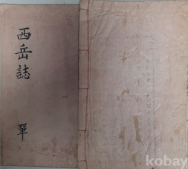 西岳誌
單
kobay